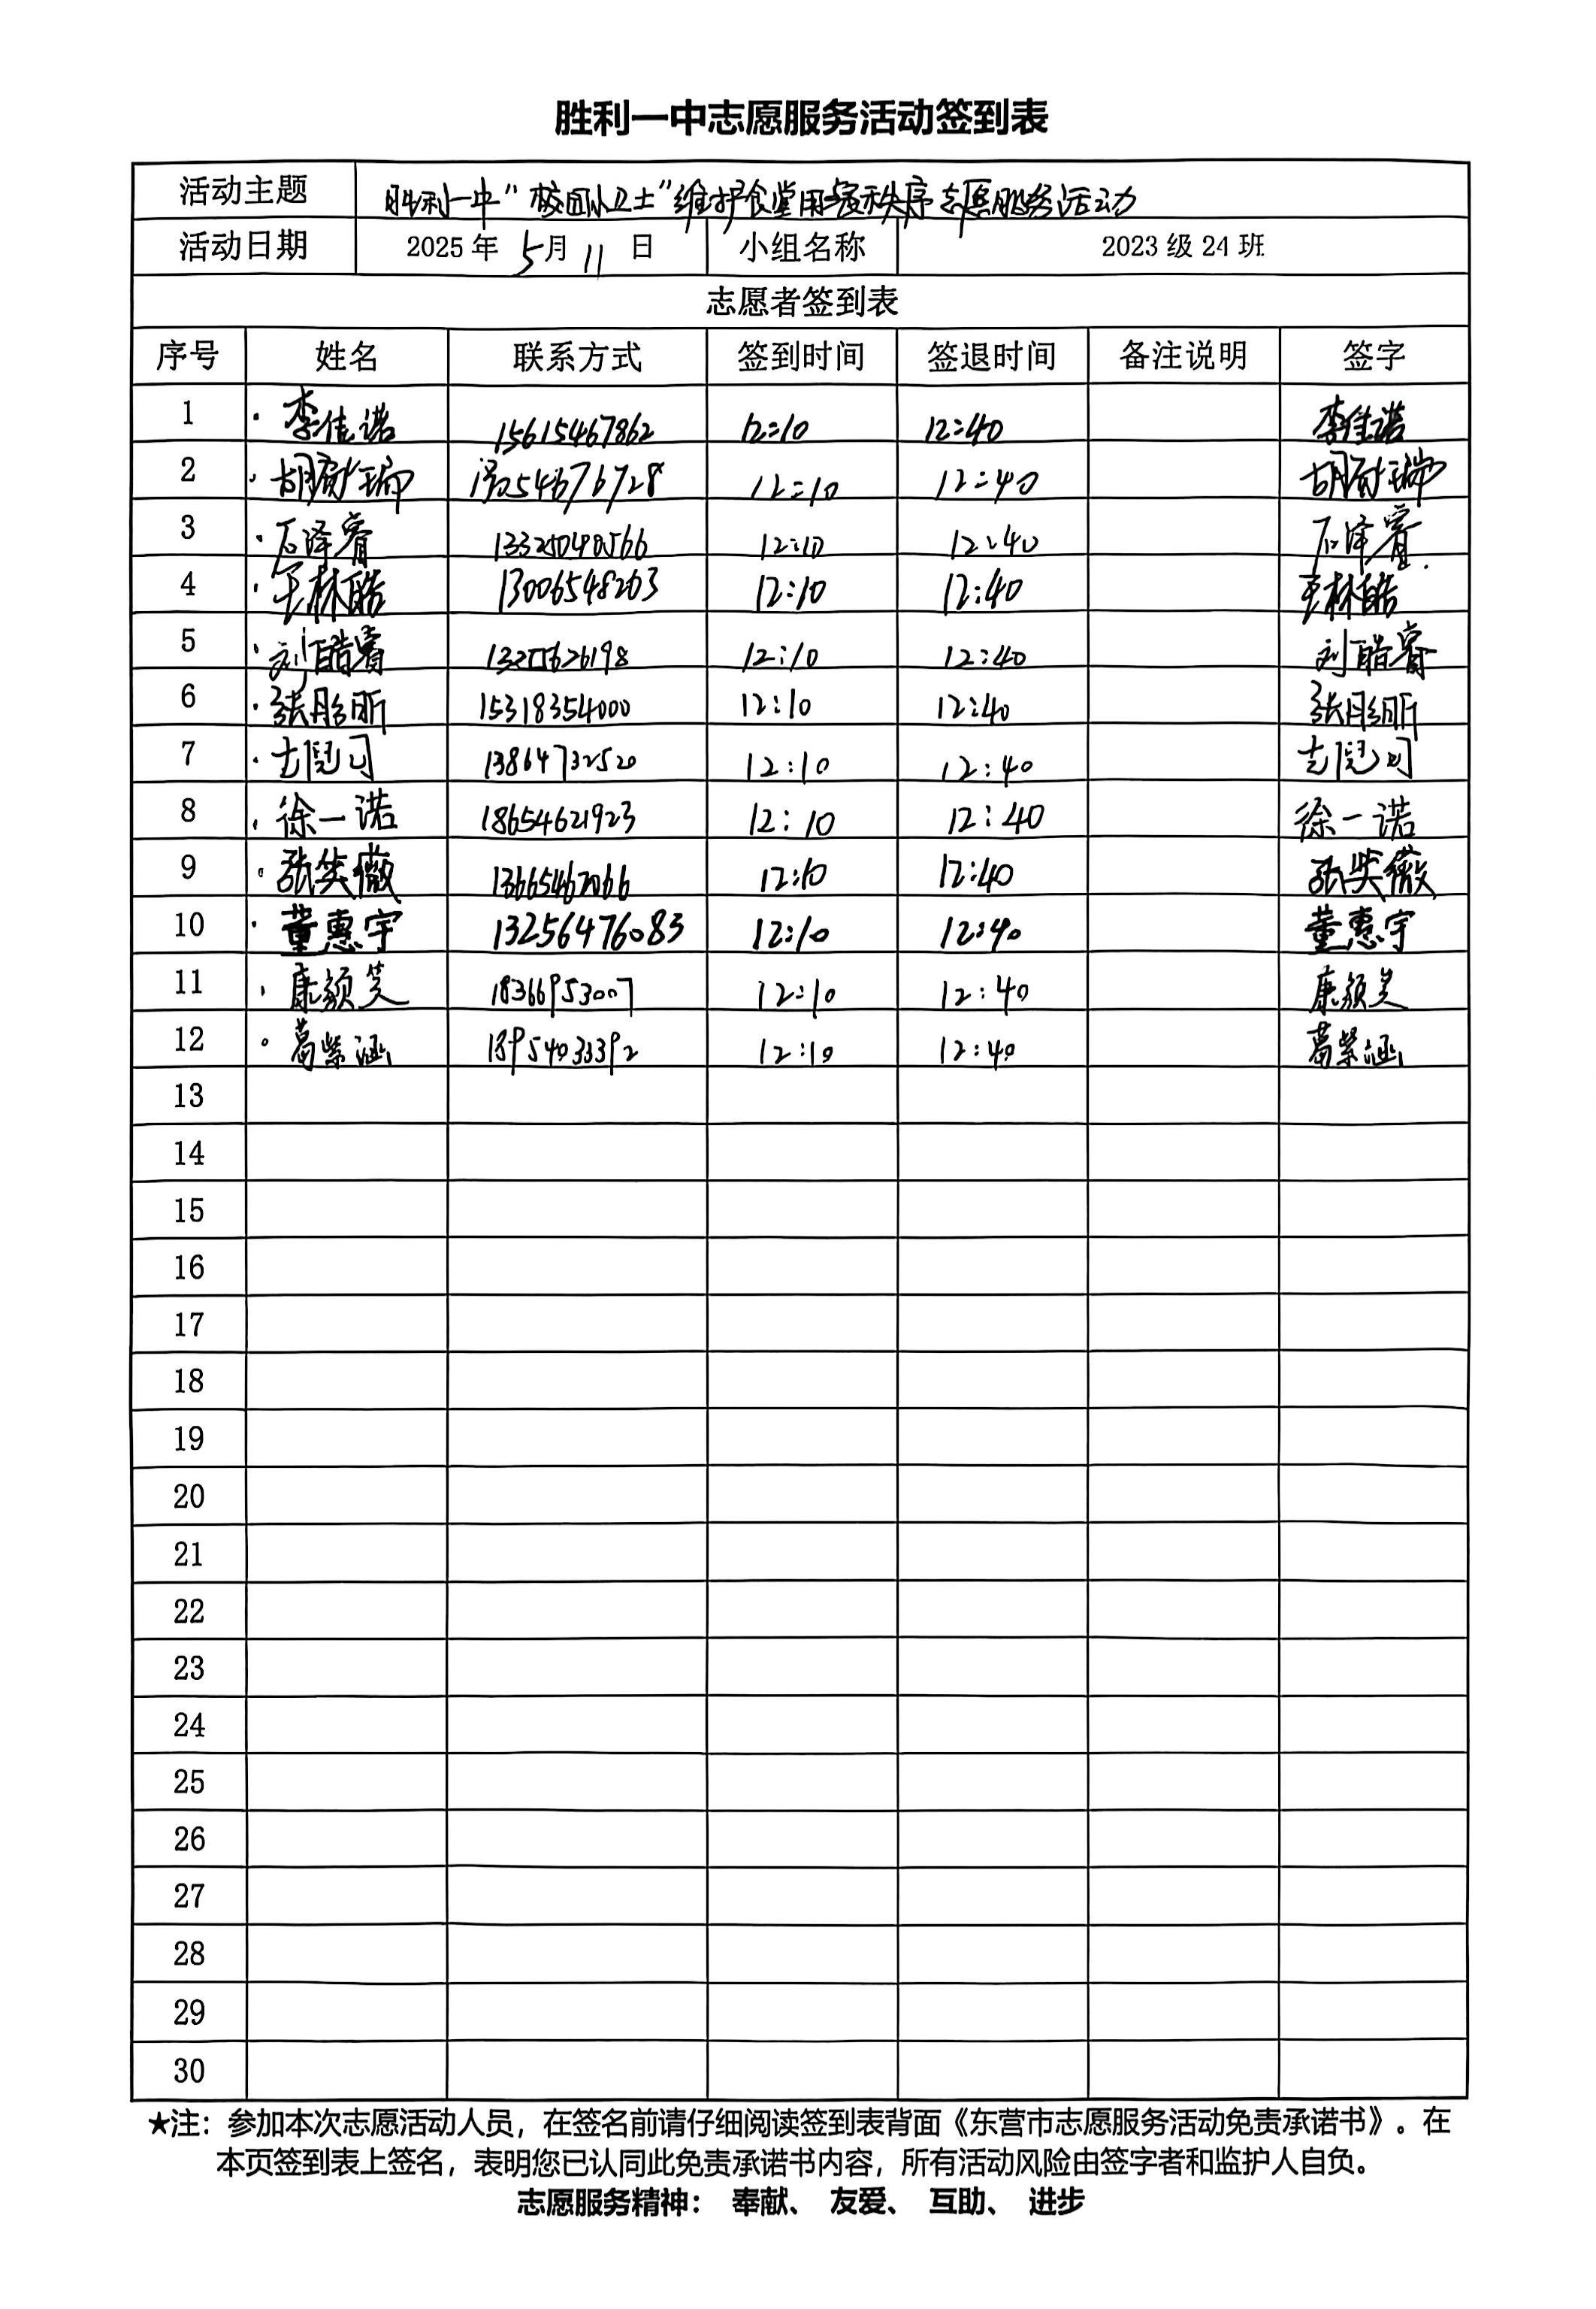 胜利一中志愿服务活动签到表
活动主题 胜利一中“校园小卫士”维护食堂用餐秩序志愿服务活动
活动日期 2025 年 5 月 11 日 小组名称 2023 级 24 班
志愿者签到表
序号 姓名 联系方式 签到时间 签退时间 备注说明 签字
1 李佳诺 15615467862 12:10 12:40 李佳诺
2 胡 瑞 12:10 12:40 胡 瑞
3 石泽睿 12:10 12:40 石泽睿
4 王林皓 13006548263 12:10 12:40 王林皓
5 刘皓睿 12:10 12:40 刘皓睿
6 张彤昕 15318354000 12:10 12:40 张彤昕
7 13864732520 12:10 12:40
8 徐一诺 18654621923 12:10 12:40 徐一诺
9 张笑薇 12:10 12:40 张笑薇
10 董惠宇 13256476083 12:10 12:40 董惠宇
11 康颜笑 18366953007 12:10 12:40 康颜笑
12 葛紫涵 18954033392 12:10 12:40 葛紫涵
13
14
15
16
17
18
19
20
21
22
23
24
25
26
27
28
29
30
★注：参加本次志愿活动人员，在签名前请仔细阅读签到表背面《东营市志愿服务活动免责承诺书》。在
本页签到表上签名，表明您已认同此免责承诺书内容，所有活动风险由签字者和监护人自负。
志愿服务精神： 奉献、 友爱、 互助、 进步